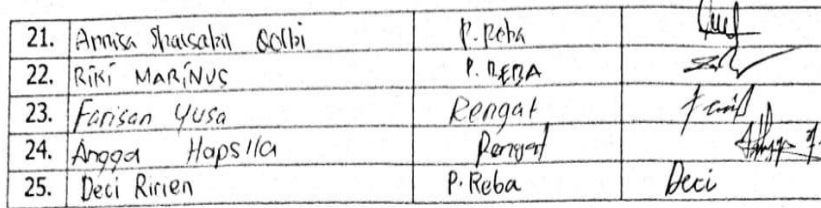 21. Annisa Shalsabil Qolbi P. Reba
22. RIKI MARINUS P. REBA
23. Farisan Yusa Rengat
24. Angga Hapsila Rengat
25. Deci Ririen P. Reba Deci